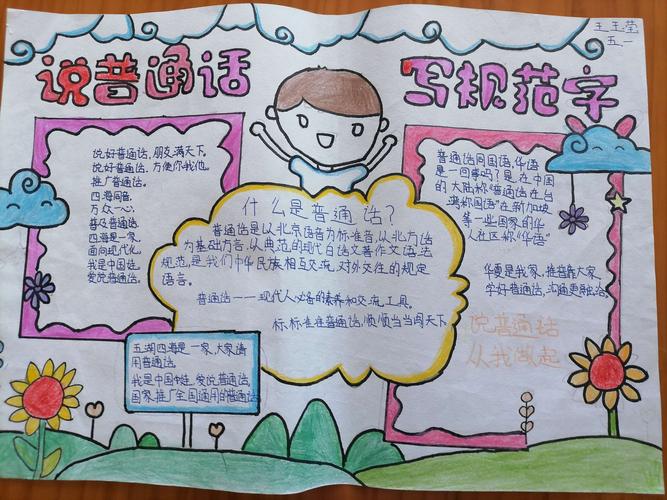 王玉莹
五一
说普通话
写规范字
说好普通话,朋友满天下。
说好普通话,方便你我他。
推广普通话
四海同音
万众一心
普及普通话
四海是一家
面向现代化
我是中国娃
爱说普通话
什么是普通话?
普通话是以北京语音为标准音,以北方话
为基础方言,从典范的现代白话文著作文语法
规范,是我们中华民族相互交流,对外交往的规定
语言。
普通话——现代人必备的素养和交流工具。
标标准准普通话,顺顺当当闯天下
普通话同国语,华语
是一回事吗?是,在中国
的大陆称"普通话在台
湾称国语"在新加坡
等一些国家的华
人社区称"华语"
华夏是我家,推普靠大家,
学好普通话,沟通更融洽
说普通话
从我做起
五湖四海是一家,大家请
用普通话
我是中国娃,爱说普通话,
国家推广全国通用的普通话